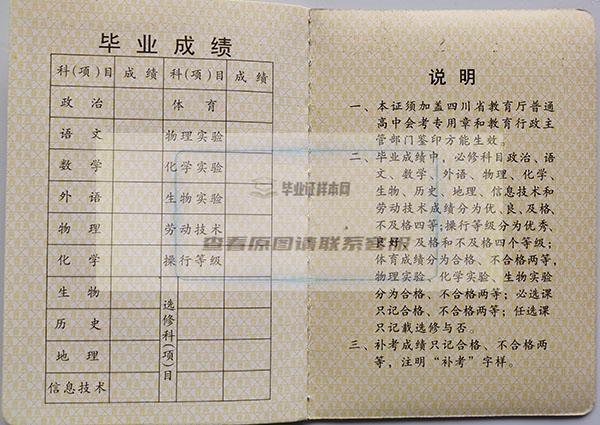 毕业成绩
科(项)目 成绩 科(项)目 成绩
政治 体育
语文 物理实验
数学 化学实验
外语 生物实验
物理 劳动技术
化学 操行等级
生物
历史
地理
信息技术
选修科(项)目
毕业证样本网
查看原图请联系客服
说明
一、本证须加盖四川省教育厅普通
高中会考专用章和教育行政主
管部门鉴印方能生效。
二、毕业成绩中，必修科目政治、语
文、数学、外语、物理、化学、
生物、历史、地理、信息技术和
劳动技术成绩分为优、良、及格、
不及格四等；操行等级分为优秀、
良好、及格和不及格四个等级；
体育成绩分为合格、不合格两等，
物理实验、化学实验、生物实验
分为合格、不合格两等；必选课
只记合格、不合格两等；任选课
只记载选修与否。
三、补考成绩只记合格、不合格两
等，注明“补考”字样。